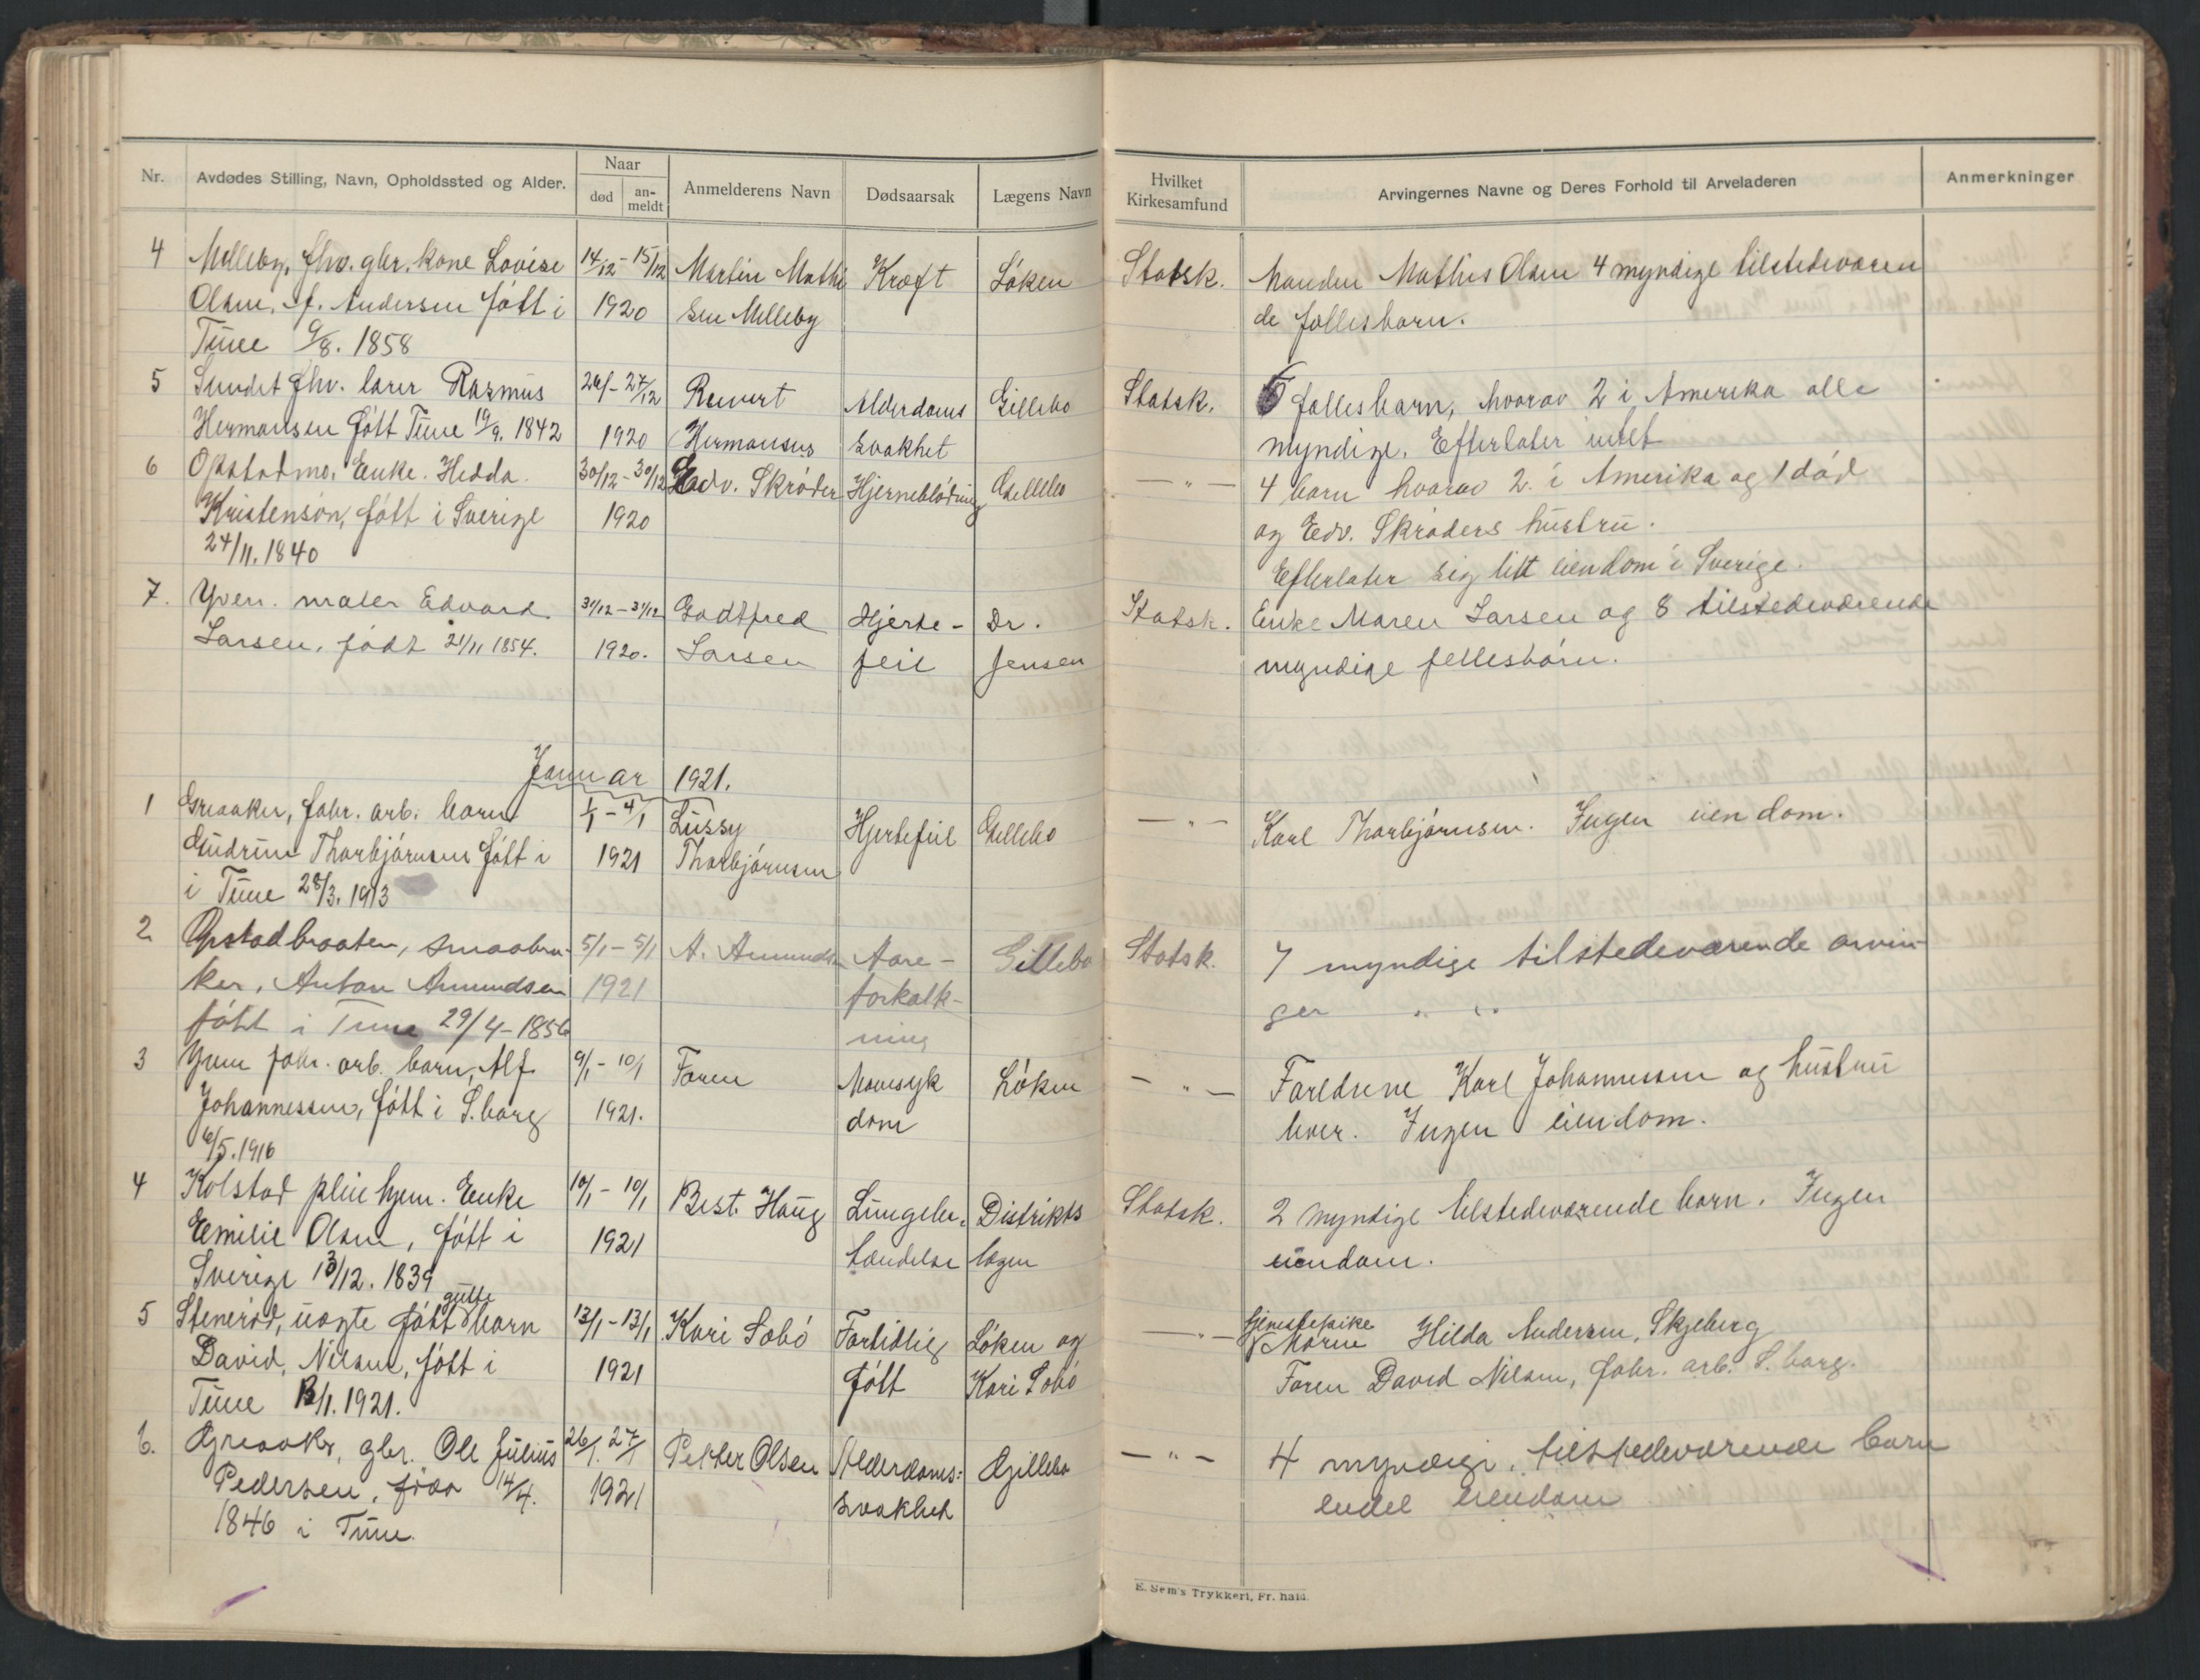 Nr.
Avdødes Stilling, Navn, Opholdssted og Alder.
Naar
død
an-
meldt
Anmelderens Navn
Dødsaarsak
Lægens Navn
Hvilket
Kirkesamfund
Arvingernes Navne og Deres Forhold til Arveladeren
Anmerkninger
4 Melleby, fhv. gbr. kone Lovise 14/12 - 15/12 Martin Mathi Kræft Løken Statsk. Manden Mathis Olsen 4 myndige tilstedeværen
Olsen, f. Andersen født i 1920 sen Melleby de fællesbarn.
Tune 9/8. 1858
5 Sundet fhv. lærer Rasmus 26/ - 27/12 Reinert Alderdoms Gillebo Statsk. 5 fællesbarn, hvorav 2 i Amerika alle
Hermansen født Tune 19/9. 1842 1920 Hermansen svakhet myndige. Efterlater intet
6 Opstadmo. Enke. Hedda 30/12 - 30/12 Edv. Skrøder Hjerneblødning Gillebo — " — 4 barn hvorav 2 i Amerika og 1 død
Kristensøn, født i Sverige 1920 og Edv. Skrøders hustru.
24/11. 1840
Efterlater sig litt eiendom i Sverige.
7. Yven. maler Edvard 31/12 - 31/12 Godtfred Hjerte- Dr. Statsk. Enke Maren Larsen og 8 tilstedeværende
Larsen, født 21/11 1854. 1920. Larsen feil Jensen myndige fellesbørn.
Januar 1921.
1 Greaaker, fabr. arb. barn 1/1 - 4/1 Lussy Hjertefeil Gillebo — " — Karl Thorbjørnsen. Ingen eiendom.
Gudrun Thorbjørnsen født i 1921 Thorbjørnsen
i Tune 28/3. 1913
2 Opstadbraaten, smaabru- 5/1 - 5/1 A. Amundsen Aare- Gillebo Statsk. 7 myndige tilstedeværende arvin-
ker, Anton Amundsen 1921 forkalk- ger " "
født i Tune 29/4 - 1856 ning
3 Yven fabr. arb. barn, Alf 9/1 - 10/1 Faren Mavesyk Løken — " — Forldrene Karl Johannessen og hustru
Johannessen, født i S.borg 1921. dom hver. Ingen eiendom.
6/5. 1916
4 Kolstad pleiehjem. Enke 10/1 - 10/1 Best. Haug Lungebe- Distrikts Statsk. 2 myndige tilstedeværende barn. Ingen
Emilie Olsen, født i 1921 tændelse lægen eiendom.
Sverige 13/12. 1839
gutte
5 Stenerød, uægte født barn 13/1 - 13/1 Kari Sæbø Fortidlig Løken og — " — tjenestepike Moren Hilda Andersen, Skjeberg
David, Nilsen, født i 1921 født Kari Sæbø Faren David Nilsen, fabr. arb. S. borg.
Tune 13/1. 1921.
6. Greaaker, gbr. Ole Julius 26/1. 27/1 Petter Olsen Alderdoms: Gillebo — " — 4 myndige, tilstedeværende barn
Pedersen, 14/4. 1921 svakhet endel eiendom
1846 i Tune.
E. Sem's Trykkeri, Fr. hald.